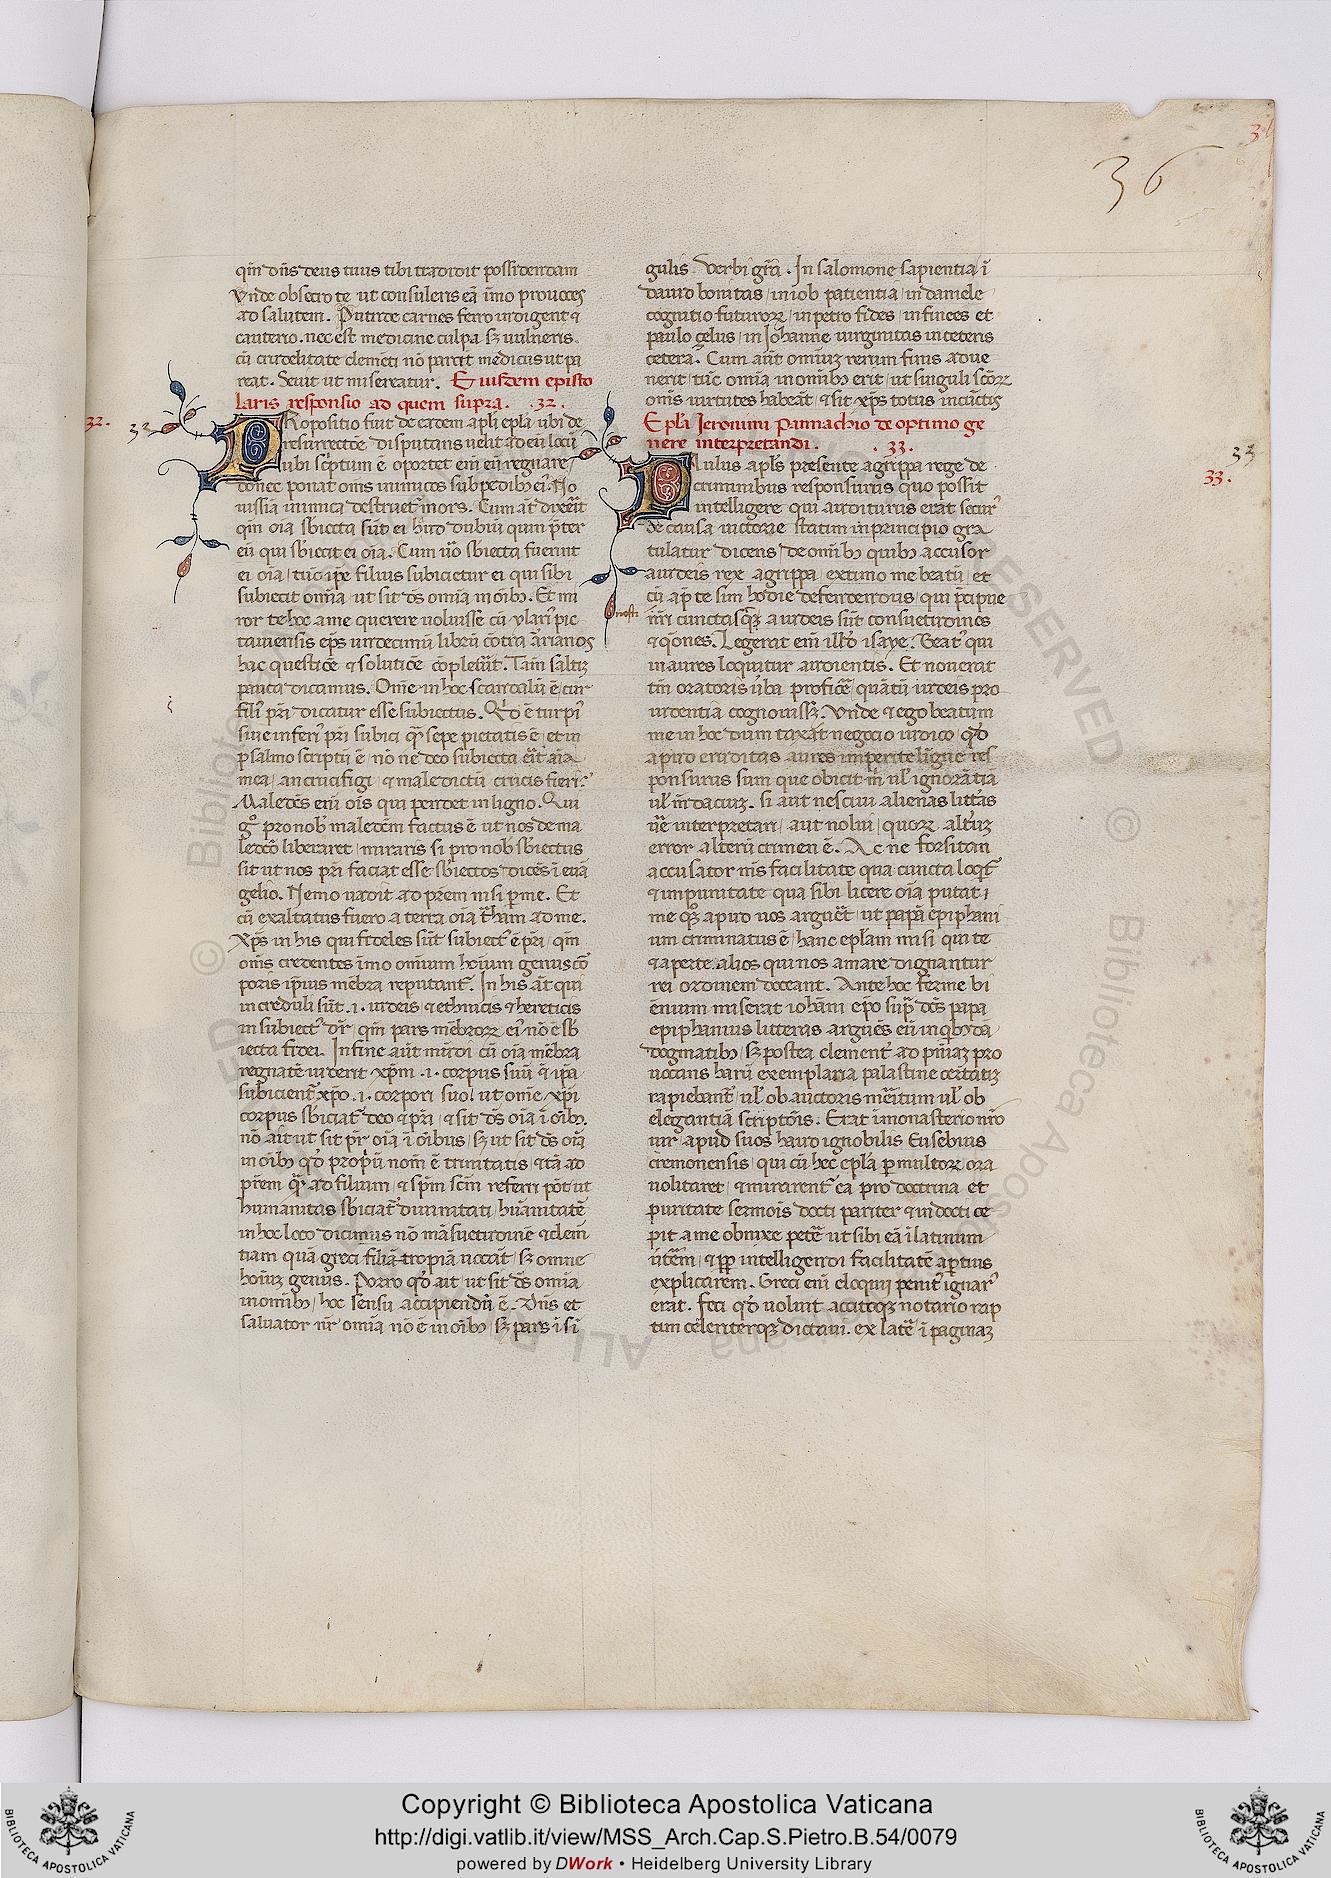 36
qm̄ dn̄s deus tuus tibi tradidit possidendam
Vnde obsecro te ut consuleris eā īmo prouoces
ad salutem. Putride carnes ferro indigent ⁊
cauterio. nec est medicine culpa sꝫ uulneris.
cū crudelitate clemēti nō parcit medicus ut pa
reat. Seuit ut misereatur. Eiusdem episto
laris responsio ad quem supra. .32.
32. 32
Propositio fuit de eadem apli epla ubi de
resurrectōe disputans uenit ad eū locū
ubi scriptum ē oportet em̄ eū regnare
donec ponat om̄s inimicos sub pedibꝰ ei. No
uissia inimica destruet᷑ mors. Cum at̄ dixerit
qm̄ oia sb̄iecta sūt ei haud dubiū quin preter
eū qui sb̄iecit ei oia. Cum uo sb̄iecta fuerint
ei oia, tūc ipe filius subicietur ei qui sibi
subiecit omīa ut sit ds̄ omīa in oībꝰ. Et mi
ror te hoc a me querere uoluisse cū ylari᷑ pic
tauiensis ep̄s undecimū librū cōtra arianos
hac questiōe ⁊ solutiōe cōpleuit. Tam̄ saltiꝫ
pauca dicamus. Om̄e in hoc scandalū ē, cur
fili᷑ pri dicatur esse subiectus.
siue inferi᷑ pri subici qꝫ sepe pietatis ē, et in
psalmo scriptū ē, nōne deo subiecta erit aīa
mea, an crucifigi ⁊ maledictū crucis fieri.
Maledc̄s em̄ ois qui pendet in ligno. Qui
g° pro nobꝰ maledc̄m factus ē ut nos de ma
ledc̄o liberaret, miraris si pro nobꝰ sb̄iectus
sit ut nos pri faciat esse sb̄iectos dicēs ī euā
gelio. Nemo uadit ad prem nisi ꝑ me. Et
cū exaltatus fuero a terra oīa traham ad me.
Xp̄s in his qui fideles sūt subiect᷑ ē pri, qm̄
om̄s credentes īmo omnium hoīum genus cor
poris ipius mēbra reputant᷑. In his at̄ qui
increduli sūt .i. iudeis ⁊ ethnicis ⁊ hereticis
insubiect᷑ dr̄, qm̄ pars mēbroꝝ ei᷑ nō ē sb̄
iecta fidei. In fine aūt mūdi cū oīa mēbra
regnatē uiderit xp̄m .i. corpus suū ⁊ ipa
subicient᷑ xp̄o .i. corpori suo, ut om̄e xp̄i
corpus sb̄iciat᷑ deo ⁊ pri, ⁊ sit ds̄ oīa ī oībꝰ.
nō ait ut sit pr̄ oīa ī oībus, sꝫ ut sit ds̄ oīa
in oībꝰ qd̄ propriū nom̄ ē trinitatis, ⁊ tā ad
prem qꝫ ad filium, ⁊ spm̄ scm̄ referri pōt ut
humanitas sb̄iciat᷑ diuinitati, hūanitatē
in hoc loco dicimus nō māsuetudinē ⁊ clemē
tiam quā greci filiātropiā uocāt, sꝫ omne
hoīuꝫ genus. Porro qd̄ ait ut sit ds̄ omīa
in omībꝰ, hoc sensu accipiendū ē. Dn̄s et
saluator nr̄ omīa nō ē in oībꝰ sꝫ pars ī si
gulis. Verbi gr̄a. In salomone sapientia, ī
dauid bonitas, in iob patientia, in daniele
cognitio futuroꝝ, in petro fides, in finees et
paulo çelus, in Johanne uirginitas in ceteris
cetera. Cum aūt omniuꝫ rerum finis adue
nerit, tūc omīa in omībꝰ erit, ut singuli scōꝝ
om̄s uirtutes habeāt, ⁊ sit xp̄s totus in cūctis
Epl̄a Jeronimi Pamachio de optimo ge
nere interpretandi. .33.
33
33.
Paulus apl̄s presente agrippa rege de
criminibus responsurus quo possit
intelligere qui auditurus erat secur᷑
de causa uictorie statim in principio gra
tulatur dicens de omībꝰ quibꝰ accusor
a iudeis rex agrippa, extimo me beatū, et
cū ap̄ te sim hodie defendendus, qui precipue
nosti cunctas qꝫ a iudeis sūt consuetudines
⁊ qōnes. Legerat em̄ illd̄ isaye. Beat᷑ qui
in aures loquitur audientis. Et nouerat
tm̄ oratoris uba proficere, quātū iudeis pro
udentia cognouissꝫ. Vnde ⁊ ego beatum
me in hoc dum taxat negocio iudico, qd̄
apud eruditas aures imperite līgue res
ponsurus sum que obicit m̄ ul᷑ ignorātia
ul᷑ mēdaciuꝫ. si aut nesciui alienas litteras
ue interpretari, aut nolui, quoꝝ alt᷑uꝫ
error alterū crimen ē. Ac ne forsitan
accusator m̄s facilitate qua cuncta loqt᷑
⁊ impunitate qua sibi licere oīa putat,
me qꝫ apud uos arguet, ut papā epiphani
um criminatus ē, hanc epl̄am misi, qui te
⁊ a perte alios qui nos amare dignantur
rei ordinem doceant. Ante hoc ferme bi
ennium miserat iohāni ep̄o sup̄ dc̄s papa
epiphanius litteras arguēs eū in qbꝰda
dogmatibꝰ, sꝫ postea clement᷑ ad pn̄iaꝫ pro
uocans harū exemplaria palastine certatiꝫ
rapiebant᷑, ul᷑ ob auctoris meritum ul᷑ ob
elegantiā scriptōis. Erat ī monasterio nro
uir, apud suos haud ignobilis Eusebius
cremonensis, qui cū hec epl̄a ꝑ multoꝝ ora
uolitaret, ⁊ mirarent᷑ eā pro doctrina et
puritate sermōis docti pariter ⁊ indocti ce
pit a me obnixe petere ut sibi eā ī latinum
uertem̄, ⁊ ꝓp intelligendi facilitatē aptius
explicarem. Greci em̄ eloquij penit᷑ ignar᷑
erat. feci qd̄ uoluit accitoqꝫ notario rap
tim celeriterqꝫ dictaui. ex latere ī paginaꝫ
Copyright © Biblioteca Apostolica Vaticana
http://digi.vatlib.it/view/MSS_Arch.Cap.S.Pietro.B.54/0079
powered by DWork • Heidelberg University Library
BIBLIOTECA APOSTOLICA VATICANA
BIBLIOTECA APOSTOLICA VATICANA